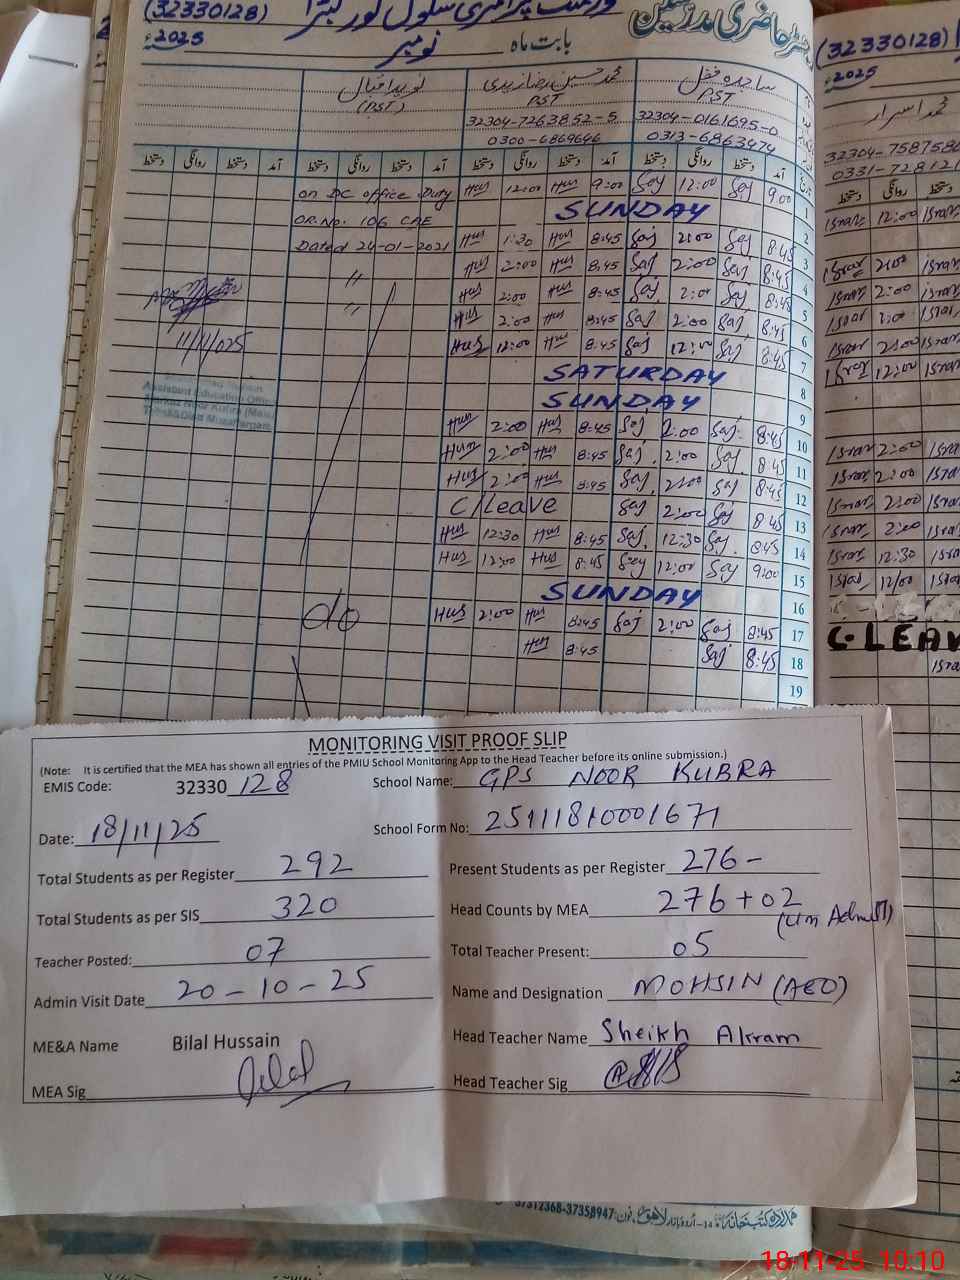 (32330128)
2025 نومبر بابت ماہ
رجسٹر حاضری مدرسین
(32330128)
2025
نوید اقبال محمد حسین رضا زیدی ساجدہ فضل
(PST) PST PST
32304-7263852-5 32304-0161695-0
0300-6869646 0313-6863474
دستخط روانگی دستخط آمد دستخط روانگی دستخط آمد دستخط روانگی دستخط آمد
on DC office Duty Hus 12:00 Hus 9:00 Saj 12:00 Saj 9:00 1
OR.No. 106 CAE SUNDAY 2
Dated 24-01-2021 Hus 1:30 Hus 8:45 Saj 2:00 Saj 8:45 3
〃 Hus 2:00 Hus 8:45 Saj 2:00 Saj 8:45 4
〃 Hus 2:00 Hus 8:45 Saj 2:00 Saj 8:45 5
Hus 2:00 Hus 8:45 Saj 2:00 Saj 8:45 6
11/11/025 Hus 12:00 Hus 8:45 Saj 12:00 Saj 8:45 7
SATURDAY 8
Assistant Education Officer
SUNDAY 9
Hus 2:00 Hus 8:45 Saj 2:00 Saj 8:45 10
Hus 2:00 Hus 8:45 Saj 2:00 Saj 8:45 11
Hus 2:00 Hus 8:45 Saj 2:00 Saj 8:45 12
C/Leave Saj 2:00 Saj 8:45 13
Hus 12:30 Hus 8:45 Saj 12:30 Saj 8:45 14
Hus 12:00 Hus 8:45 Saj 12:00 Saj 9:00 15
SUNDAY 16
do Hus 2:00 Hus 8:45 Saj 2:00 Saj 8:45 17
Hus 8:45 Saj 8:45 18
19
محمد اسرار
32304-758758
0331-72812
دستخط روانگی دستخط
Israr 12:00 Israr
Israr 2:00 Israr
Israr 2:00 Israr
Israr 2:00 Israr
Israr 2:00 Israr
Israr 12:00 Israr
Israr 2:00 Israr
Israr 2:00 Israr
Israr 2:00 Israr
Israr 2:00 Israr
Israr 12:30 Israr
Israr 12/00 Israr
C-LEAV
Isra
MONITORING VISIT PROOF SLIP
(Note: It is certified that the MEA has shown all entries of the PMIU School Monitoring App to the Head Teacher before its online submission.)
EMIS Code: 32330 128 School Name: GPS NOOR KUBRA
Date: 18/11/25 School Form No: 25111810001671
Total Students as per Register 292 Present Students as per Register 276-
Total Students as per SIS 320 Head Counts by MEA 276+02
(Un Admitt)
Teacher Posted: 07 Total Teacher Present: 05
Admin Visit Date 20-10-25 Name and Designation MOHSIN (AEO)
ME&A Name Bilal Hussain Head Teacher Name Sheikh Akram
MEA Sig Bilal Head Teacher Sig
37312368-37358947
18-11-25 10:10